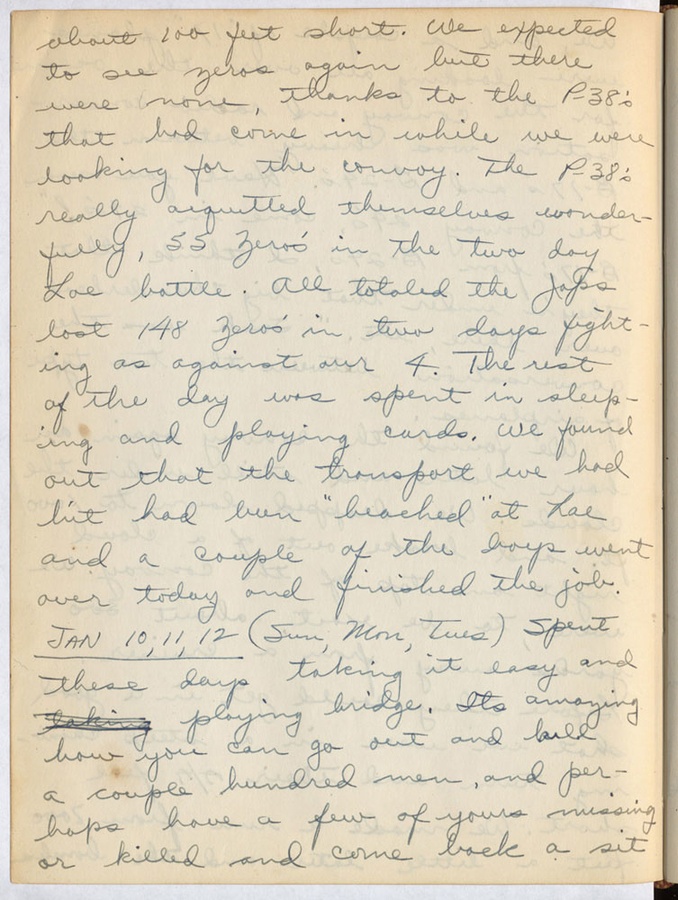 about 100 feet short. We expected
to see zeros again but there
were none, thanks to the P-38's
that had come in while we were
looking for the convoy. The P-38's
really aquitted themselves wonder-
fully, 55 Zeros' in the two day
Lae battle. All totaled the Japs
lost 148 Zeros' in two days fight-
ing as against our 4. The rest
of the day was spent in sleep-
ing and playing cards. We found
out that the transport we had
hit had been "beached" at Lae
and a couple of the boys went
over today and finished the job.
JAN 10, 11, 12 (Sun, Mon, Tues) Spent
these days taking it easy and
taking playing bridge. Its amazing
how you can go out and kill
a couple hundred men, and per-
haps have a few of yours missing
or killed and come back a sit